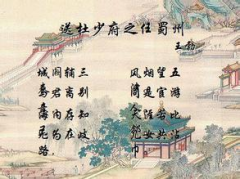 送杜少府之任蜀州
王勃
城阙辅三
君离别
内存知
为在歧
路,
风烟望五
是宦游
涯若比
女共沾
巾